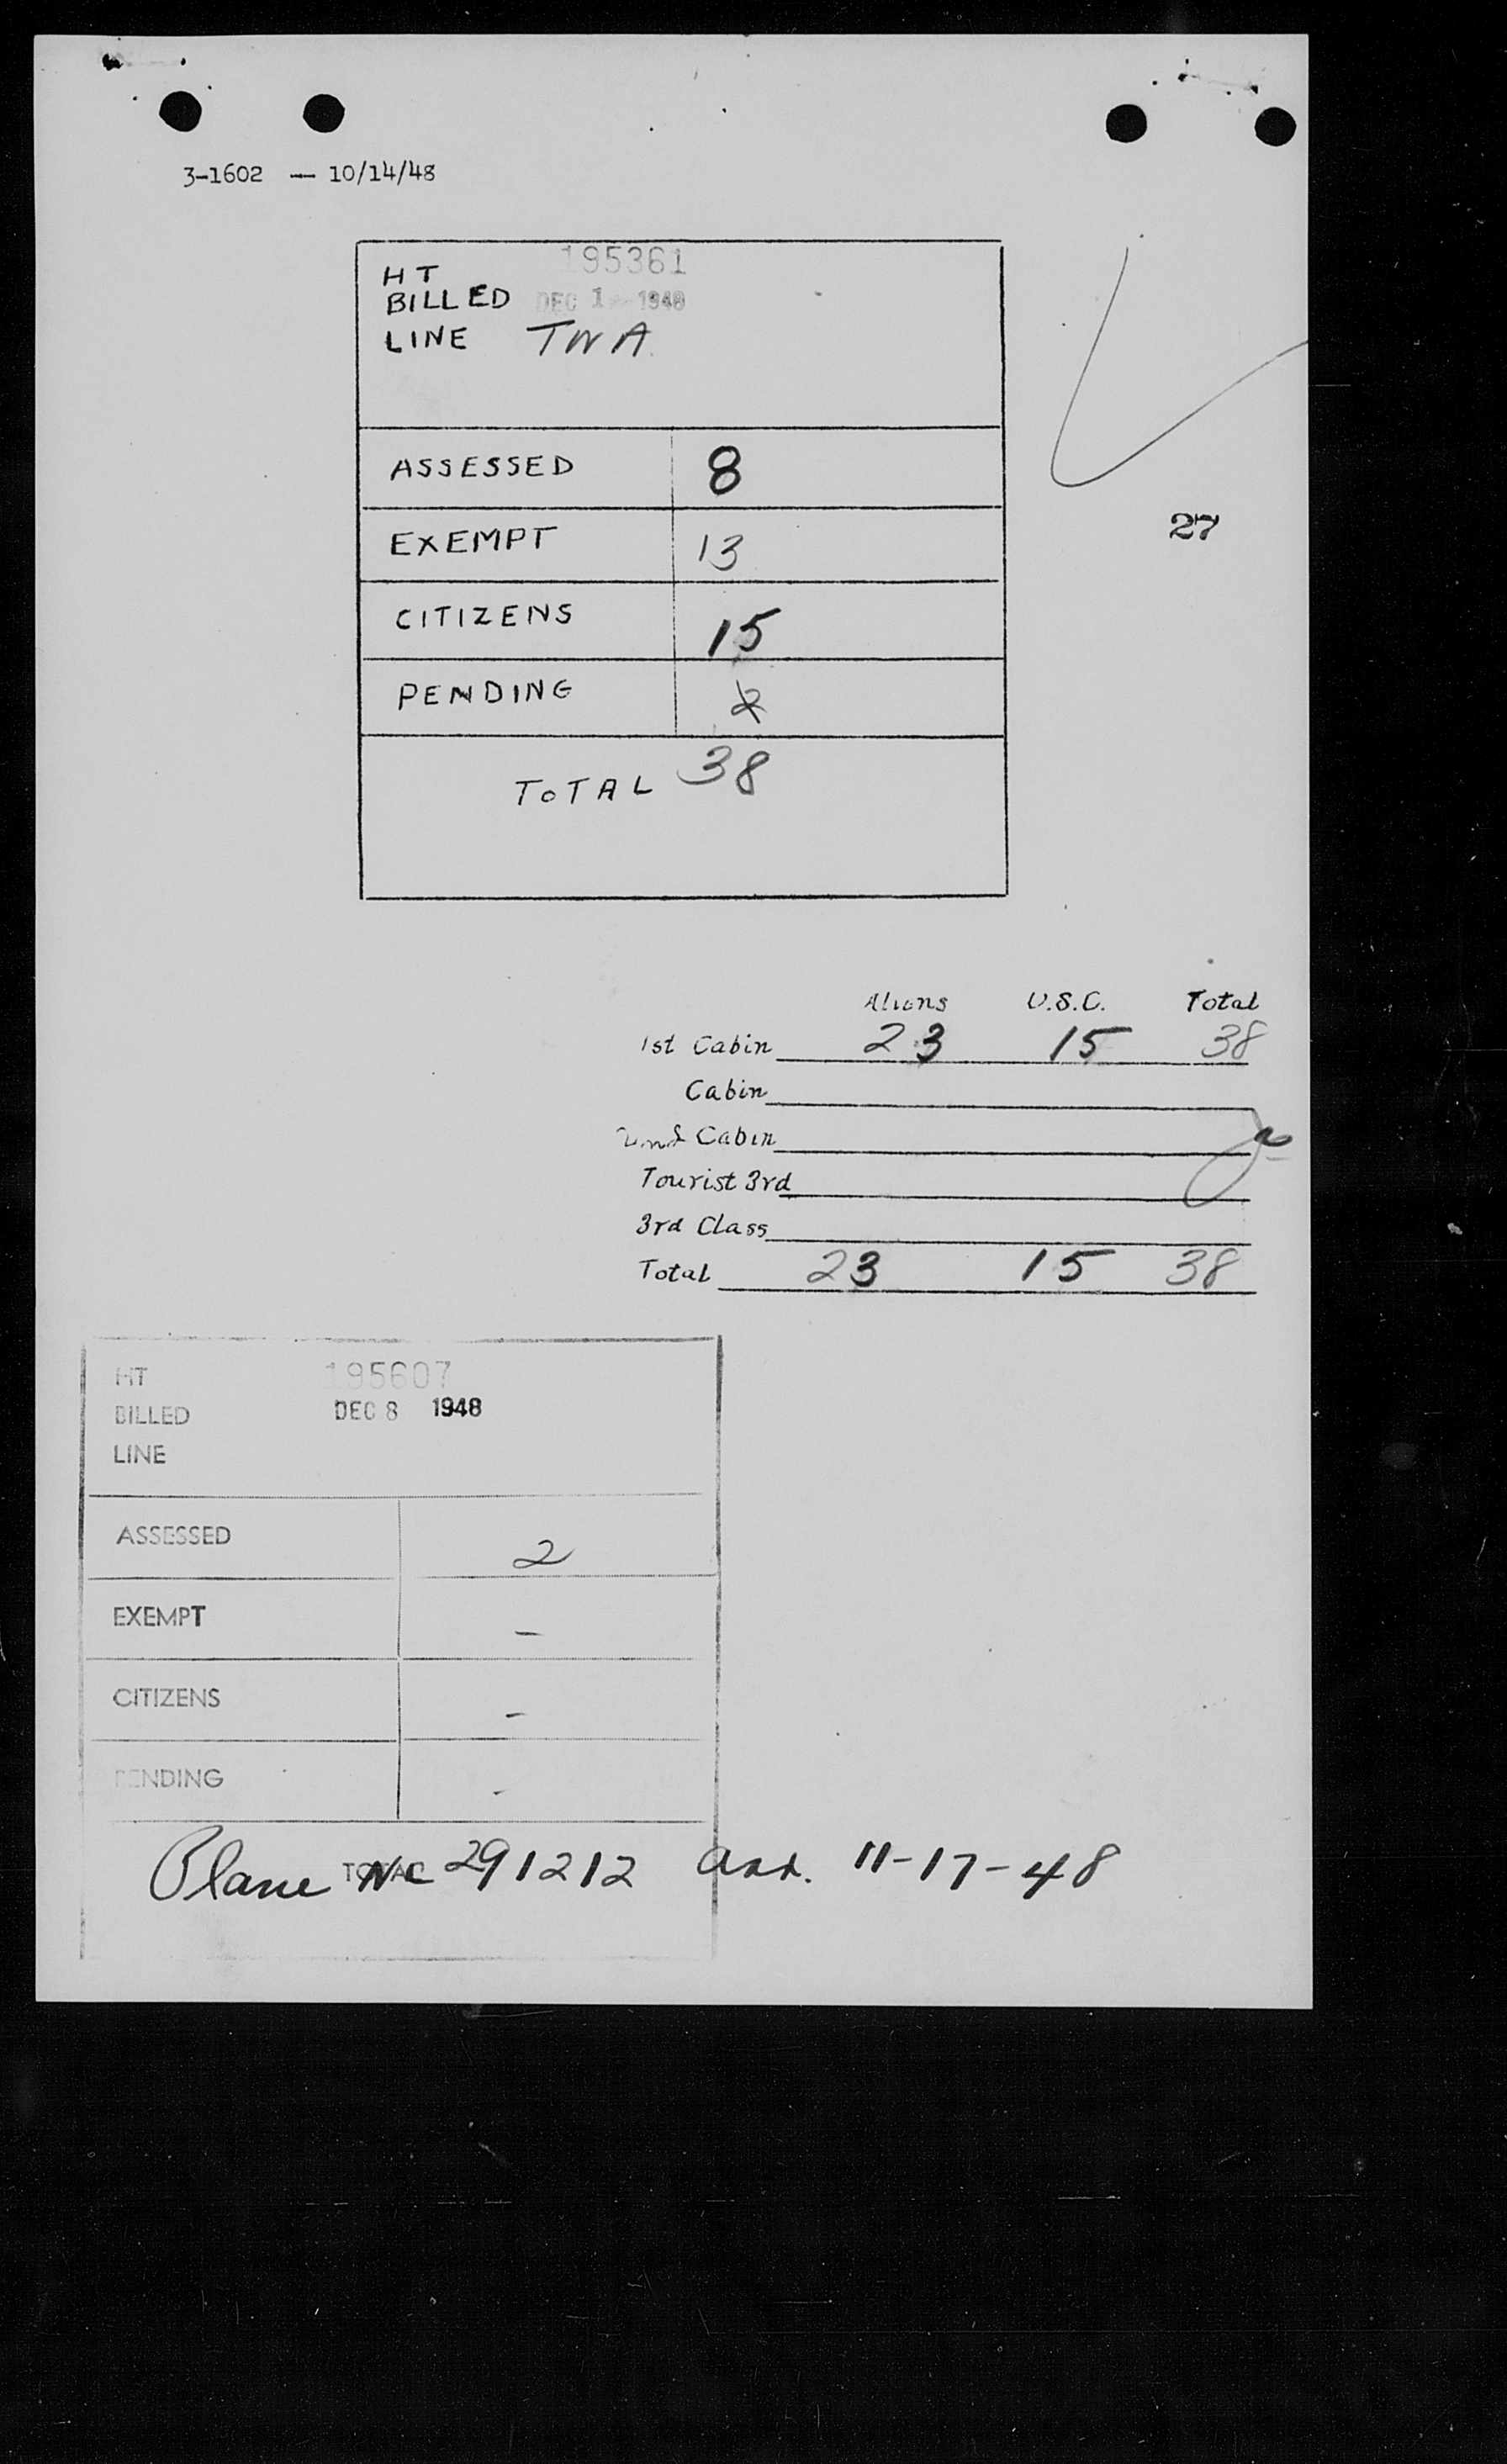 3-1602 — 10/14/48
HT 195361
BILLED DEC 1 1948
LINE TWA
ASSESSED 8
EXEMPT 13
27
CITIZENS 15
PENDING 2
TOTAL 38
Aliens U.S.C. Total
1st Cabin 23 15 38
Cabin
2nd Cabin
Tourist 3rd
3rd Class
Total 23 15 38
HT 195607
BILLED DEC 8 1948
LINE
ASSESSED 2
EXEMPT –
CITIZENS –
PENDING -
TOTAL
Plane NC 291212 arr. 11-17-48